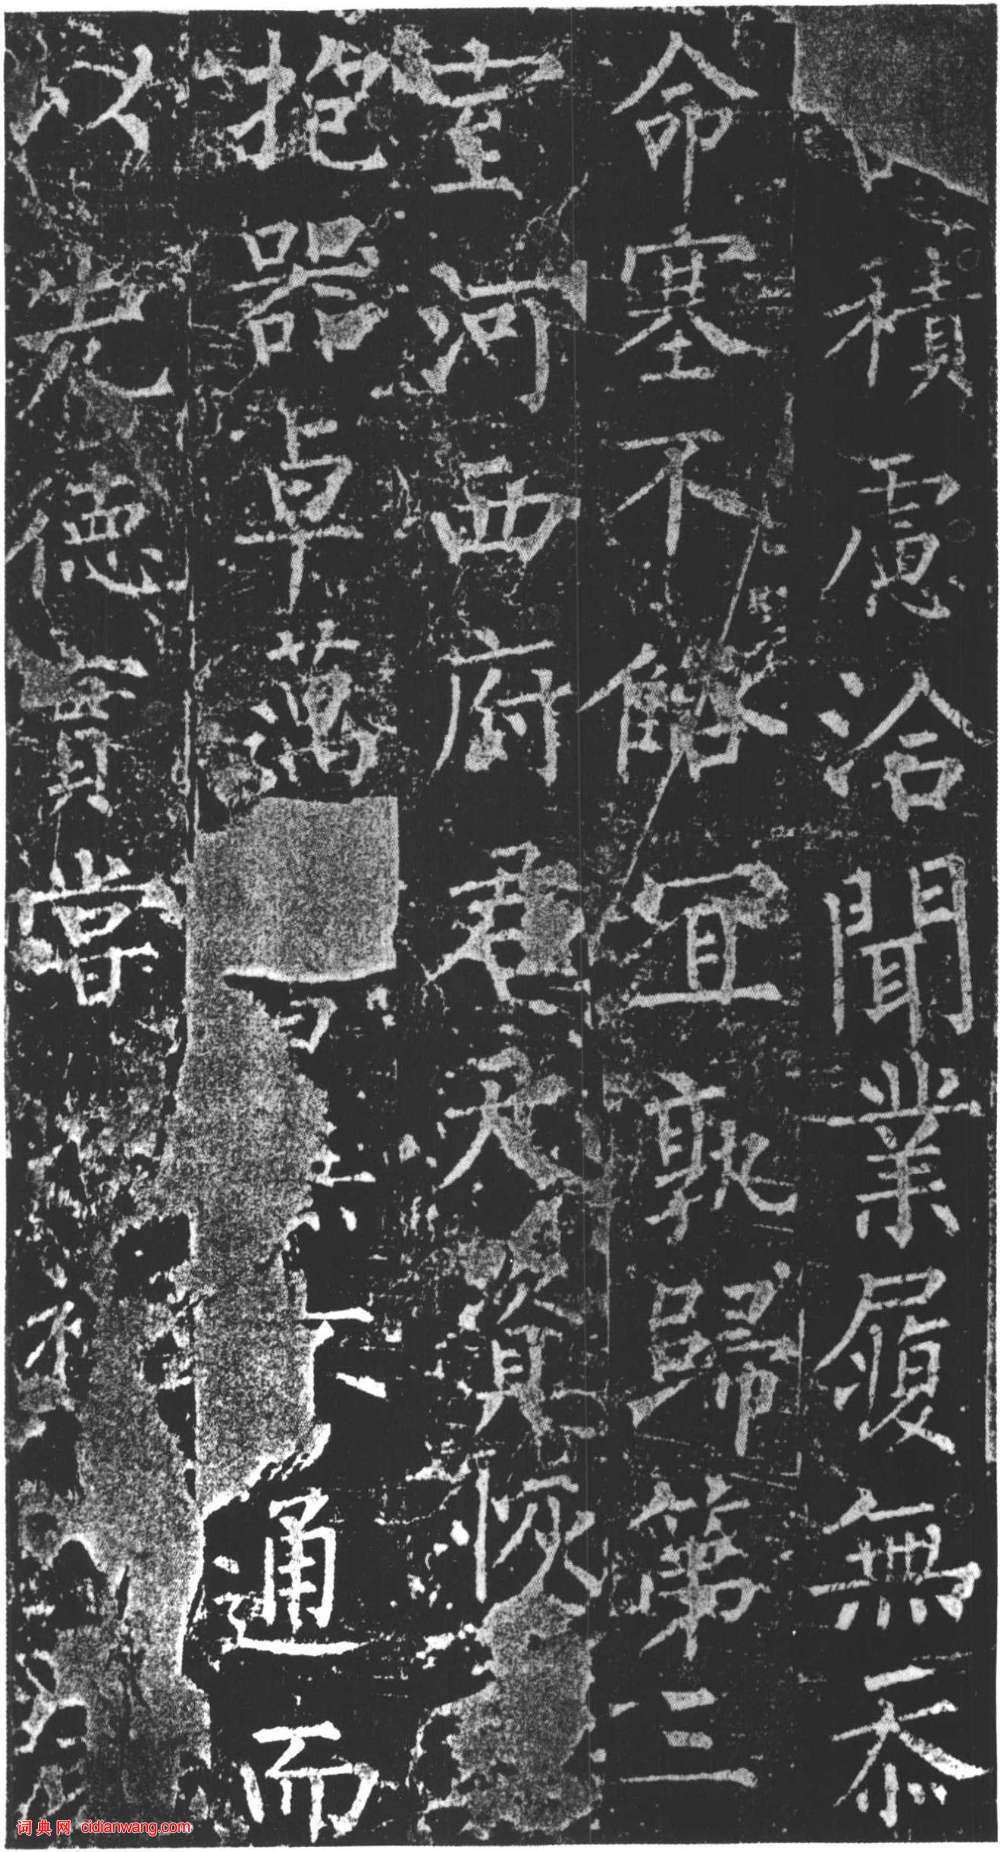 積慮洽聞業履無忝
命塞不觧宜孰歸第三
室河西府君天資恢
抱器卓薦通而
以先德實嘗
词典网 cidianwang.com